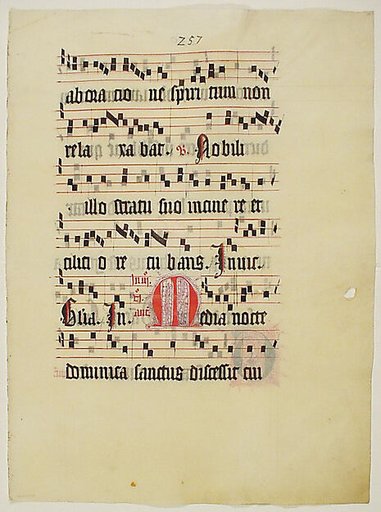 257
aboratio ne spiri tum non
rela xa bat. Nobili
illo stratu suo incine re et
cilici o re cu bans. Invic.
Glia. In. Media nocte
dominica sanctus discessit cui